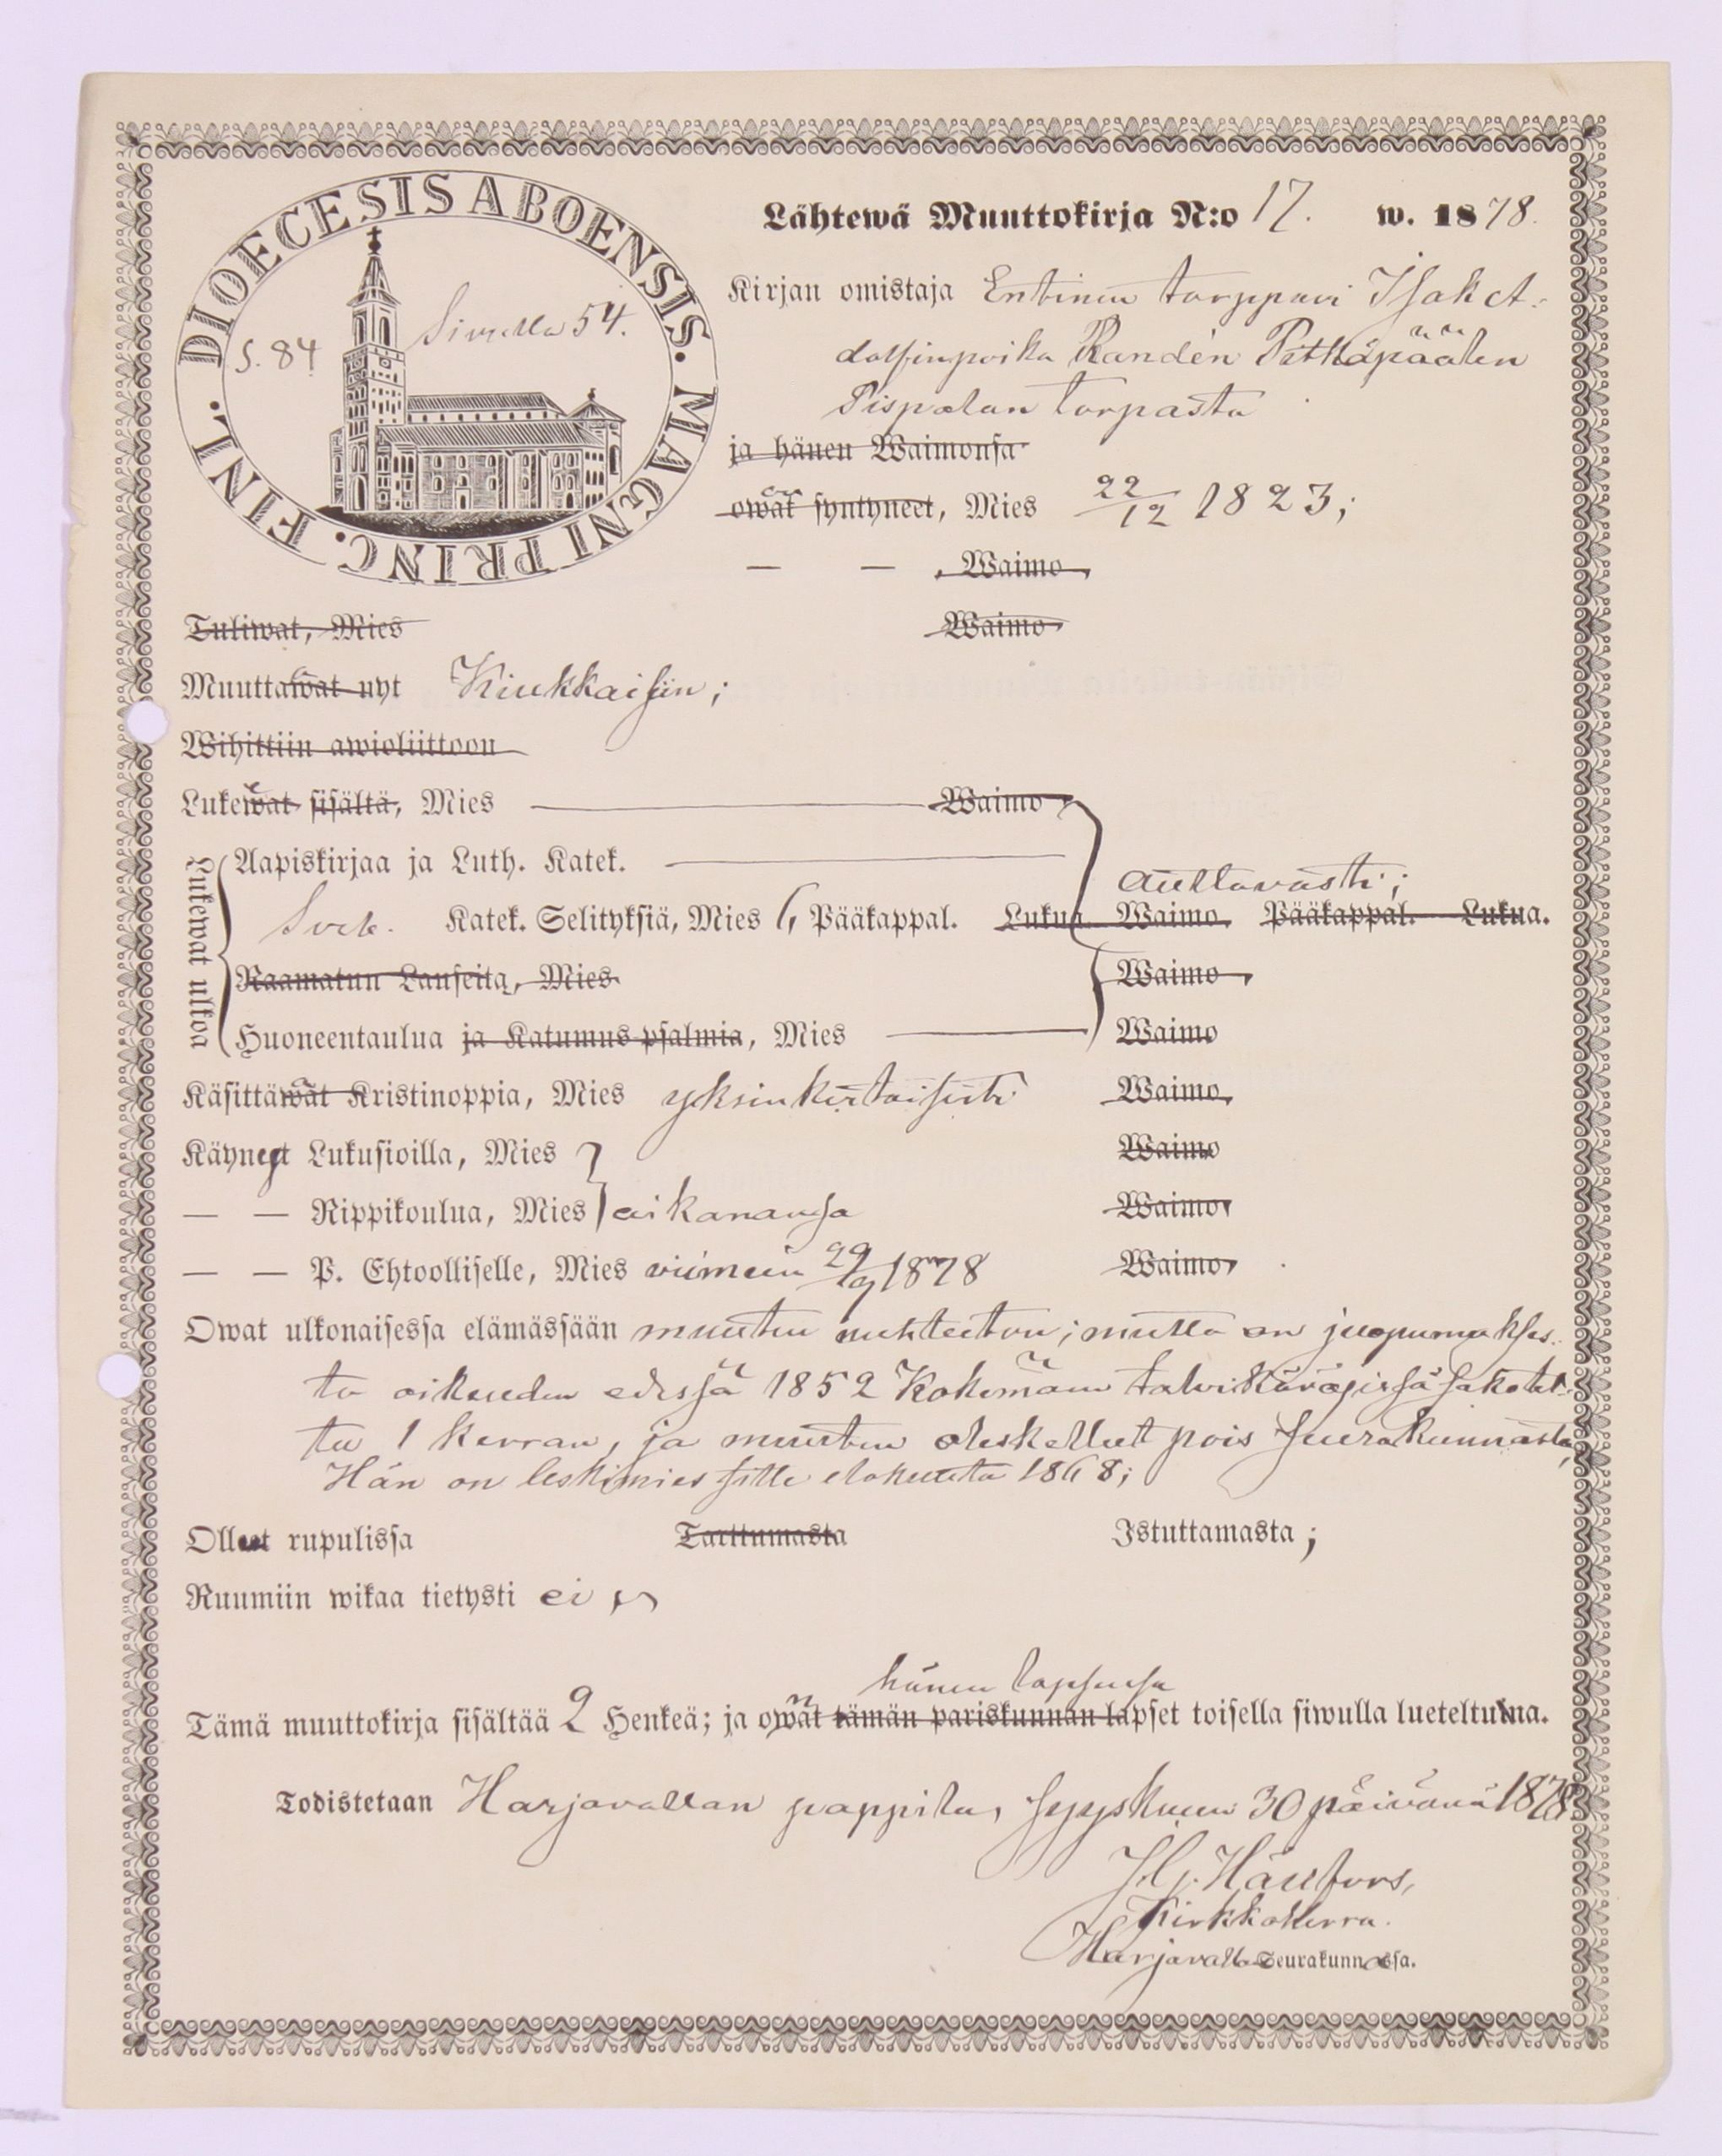 DIOECESIS ABOENSIS. MAGNI PRINC. FINL.
S. 84
Sivulla 54.
Lähtewä Muuttokirja N:o 17. w. 1878.
Kirjan omistaja Entinen torppari Isak A-
dolfinpoika Randén Pitkäpäälen
Pispalan torpasta
ja hänen Waimonsa
owat syntyneet, Mies 22/12 1823;
— — , Waimo,
Tuliwat, Mies Waimo,
Muuttawat nyt Kiukkaisiin;
Wihittiin awioliittoon
Lukewat sisältä, Mies Waimo,
Lukewat ulkoa
Aapiskirjaa ja Luth. Katek.
auttavasti;
Sveb. Katek. Selityksiä, Mies 6, Pääkappal. Lukua. Waimo, Pääkappal. Lukua.
Raamatun Lauseita, Mies Waimo,
Huoneentaulua ja Katumus-psalmia, Mies Waimo
Käsittäwät Kristinoppia, Mies yksinkertaisesti Waimo,
Käyneet Lukusioilla, Mies Waimo
— — Rippikoulua, Mies aikanansa Waimo,
— — P. Ehtoolliselle, Mies viimein 29/9 1878 Waimo,
Owat ulkonaisessa elämässään muuten nuhteeton; mutta on juopumukses-
ta oikeuden edessä 1852 Kokemäen talvikäräjissä sakotet-
tu 1 kerran, ja muuten oleskellut pois seurakunnasta,
Hän on leskimies sitte elokuuta 1868;
Olleet rupulissa Tarttumasta Istuttamasta;
Ruumiin wikaa tietysti ei
hänen lapsensa
Tämä muuttokirja sisältää 2 Henkeä; ja owat tämän pariskunnan lapset toisella siwulla lueteltuina.
Todistetaan Harjavallan pappila, Syyskuun 30 päivänä 1878.
Kirkkoherra.
Harjavalla Seurakunnassa.